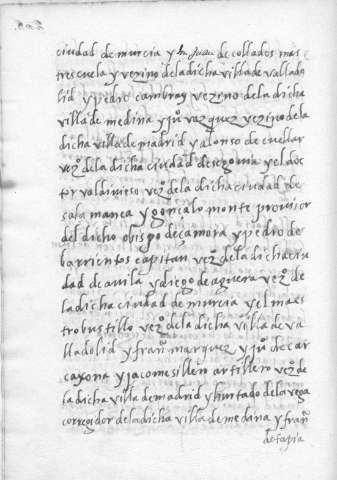 ciudad de murcia y hn Juan de collados mas
trescuela y vezino de la dicha villa de vallado
lid y pedro cambray vezino de la dicha
villa de medina y juº vazquez vezino de la
dicha villa de madrid y alonso de cuellar
vezº de la dicha ciudad de segovia y el doc
tor valdivieso vezº de la dicha ciudad de
salamanca y gonçalo monte provisor
del dicho obispo de çamora y pedro de
barrientos capitan vezº de la dicha ciu
dad de avila y diego de aguera vezº de
la dicha ciudad de murcia y el maes
tro bustillo vezº de la dicha villa de va
lladolid y franº marquez y juº de car
caxona y jacome sillero artillero vezº de
la dicha villa de madrid y hurtado de la vega
corregidor de la dicha villa de medina y franº
de tapia